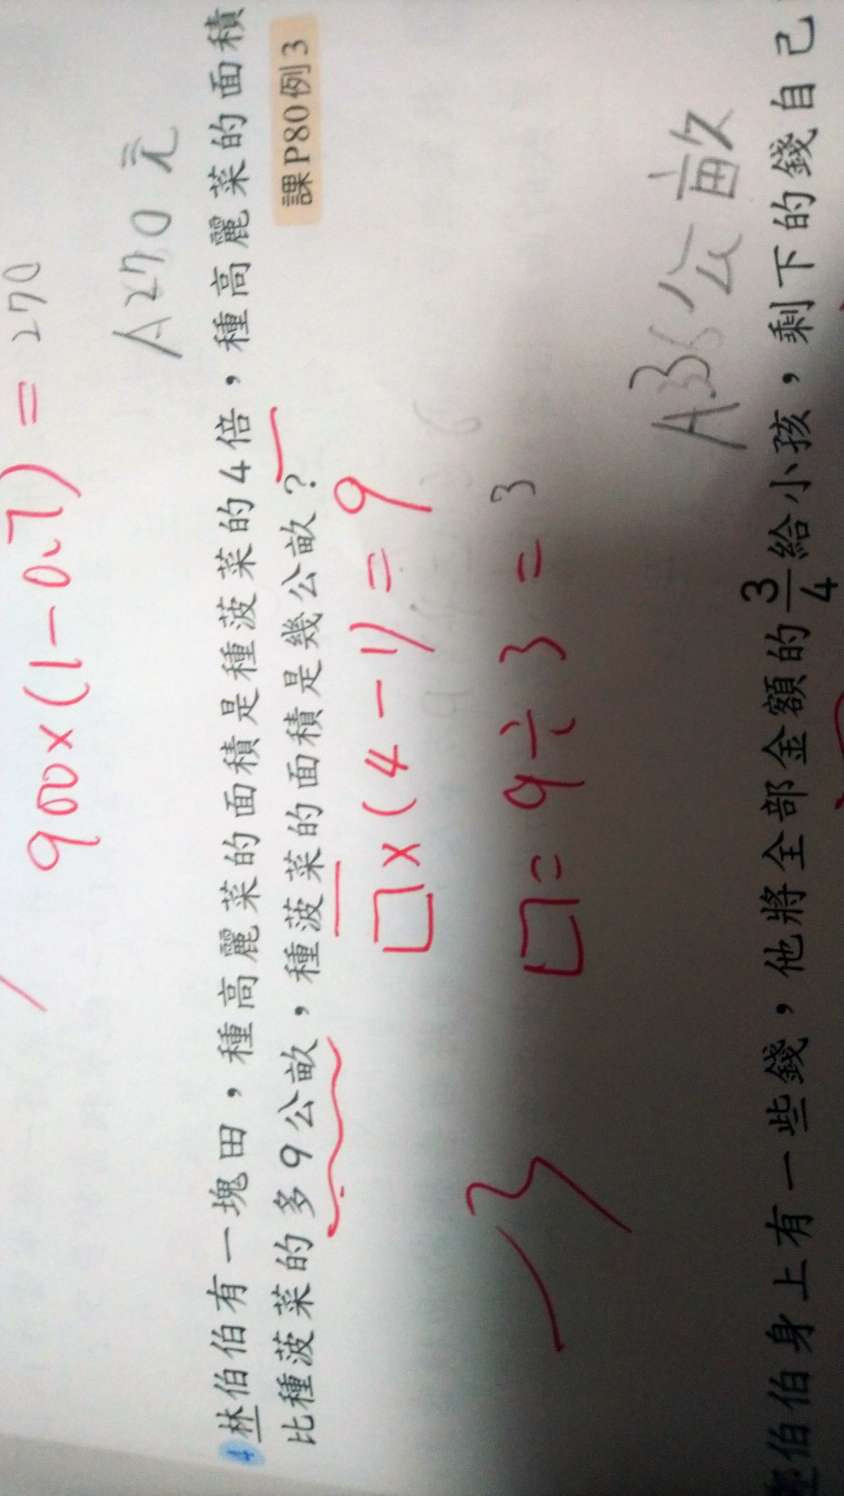 900×(1-0.7)=270
A270元
4 林伯伯有一塊田，種高麗菜的面積是種菠菜的4倍，種高麗菜的面積
比種菠菜的多9公畝，種菠菜的面積是幾公畝？
課P80例3
□×(4-1)=9
□=9÷3=3
A3公畝
伯伯身上有一些錢，他將全部金額的3/4給小孩，剩下的錢自己